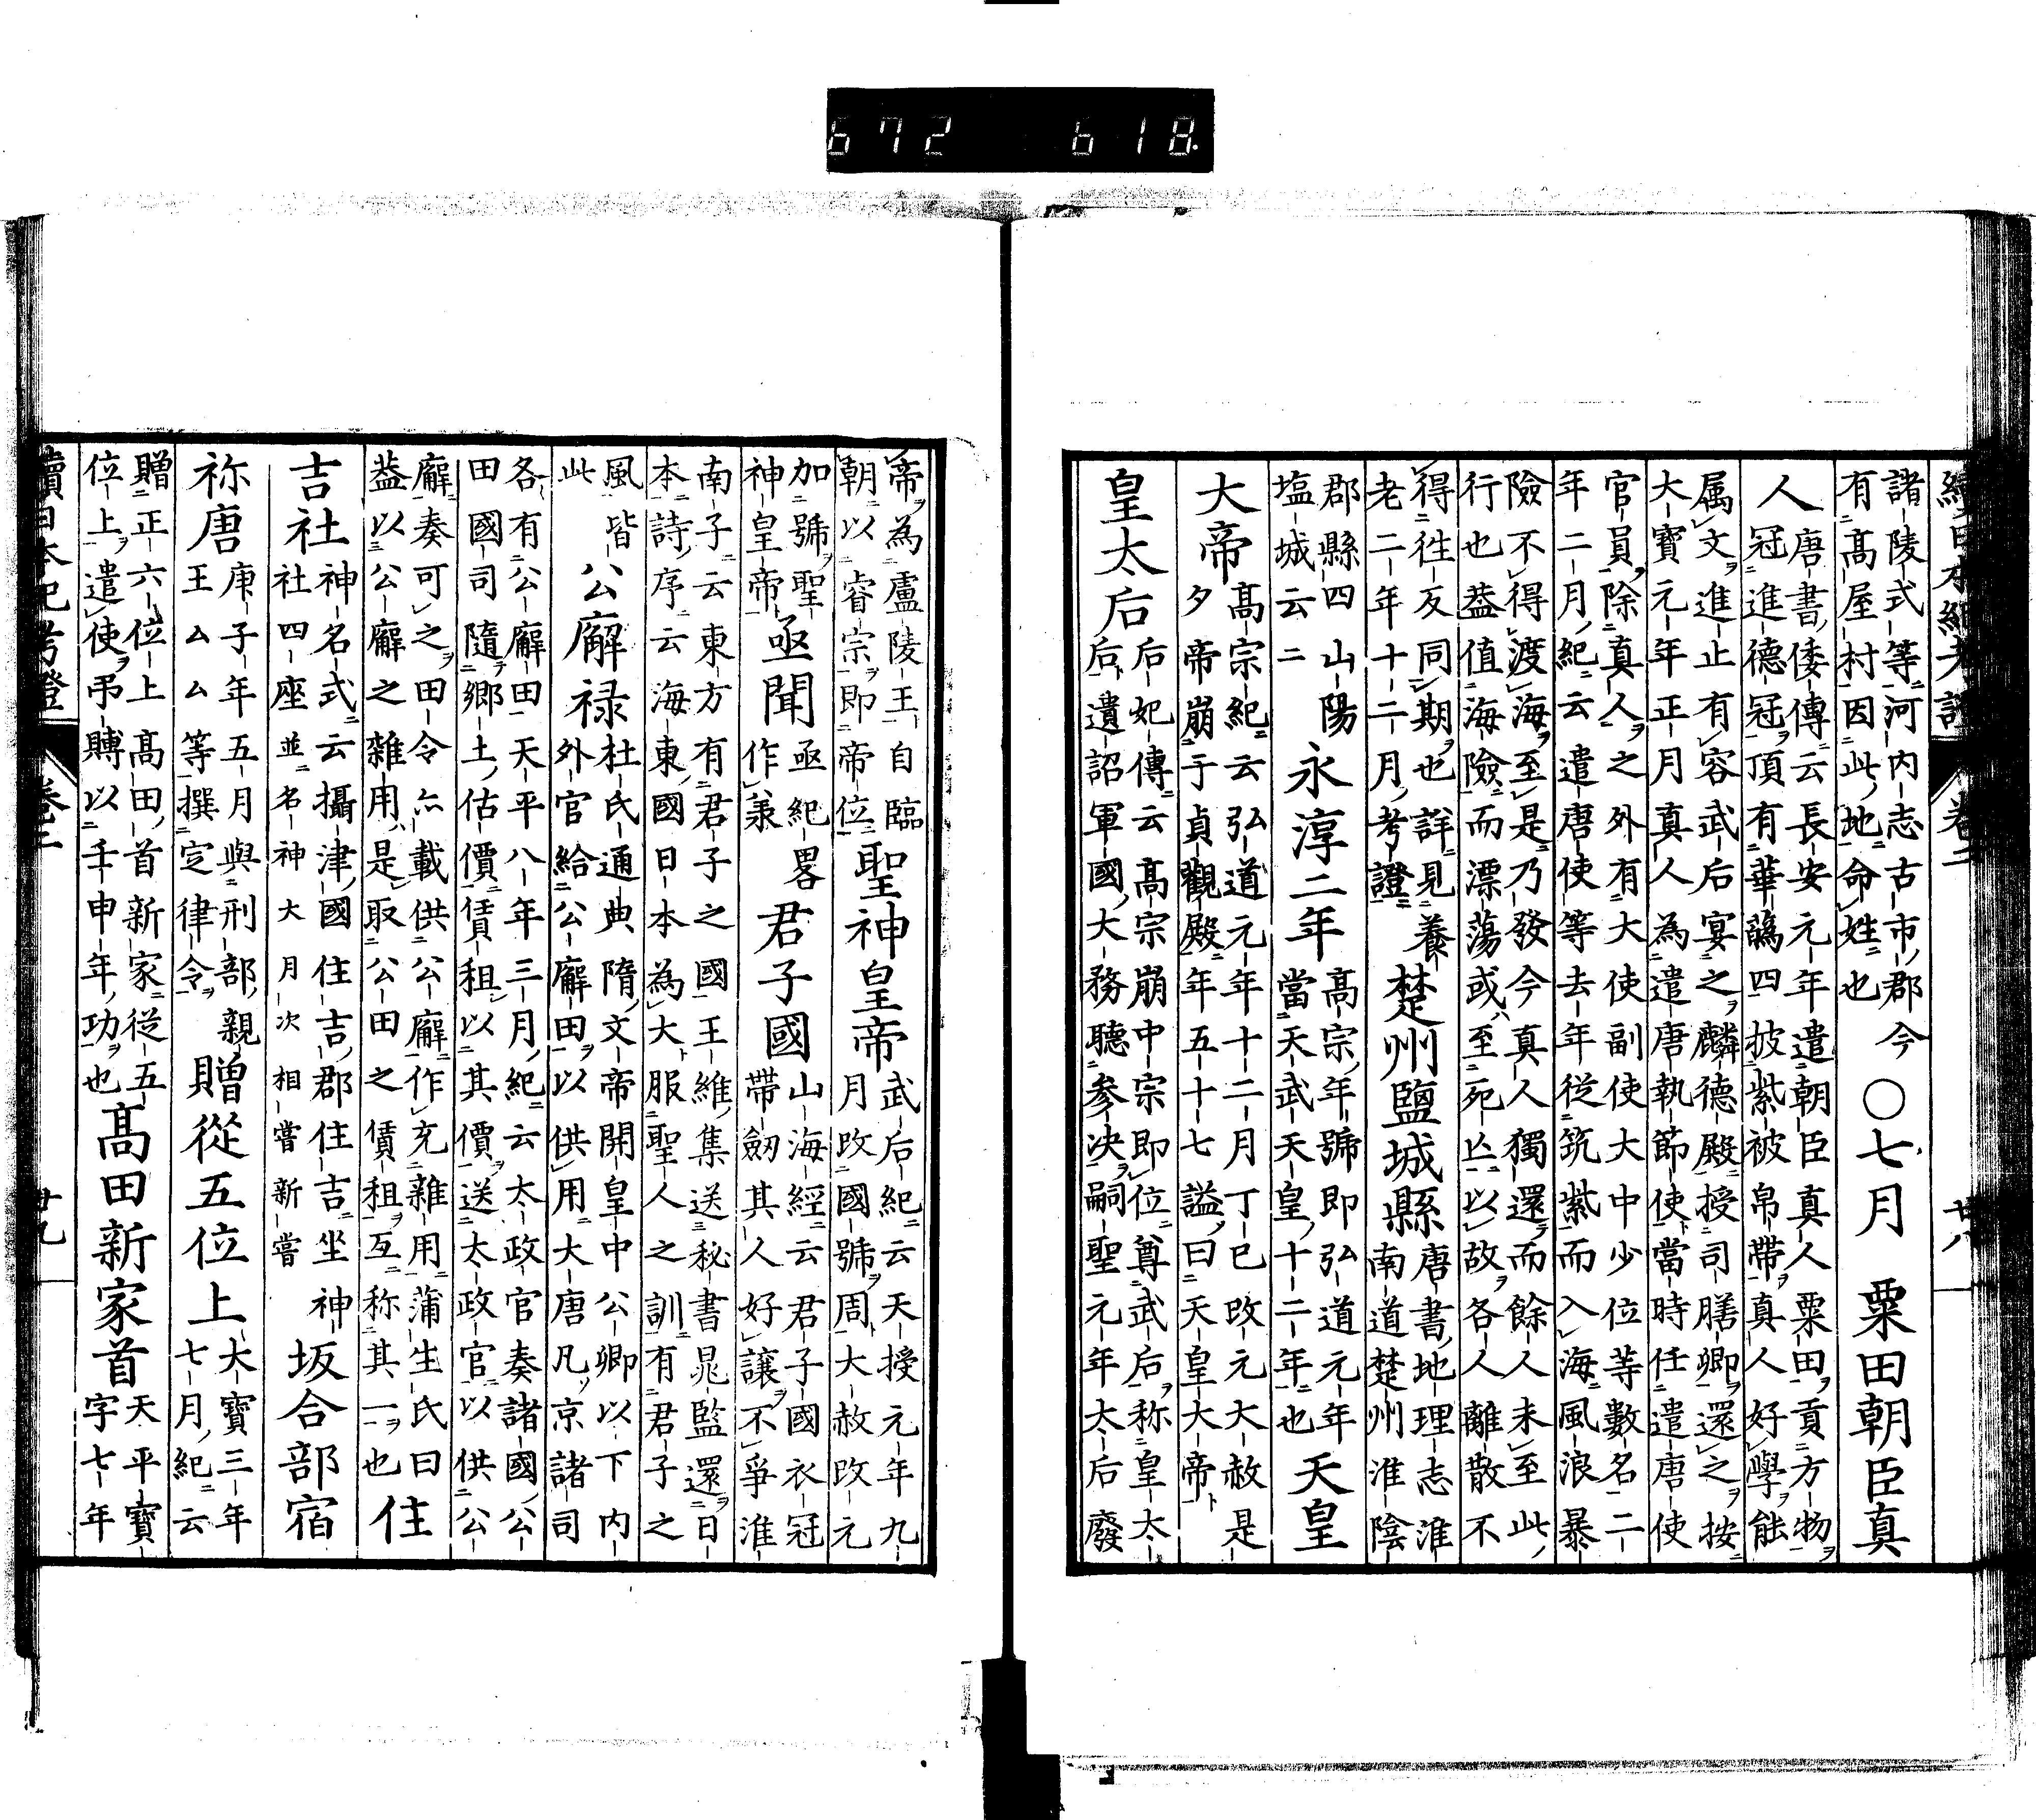 672 618
諸陵式等河内志古市郡今
有高屋村因此地命姓也
○七月　粟田朝臣真
人
唐書倭傳云長安元年遣朝臣真人粟田貢方物
冠進德冠頂有華蘤四披紫被帛帶真人好學能
属文進止有容武后宴之麟德殿授司膳卿還之按
大寶元年正月真人為遣唐執節使當時任遣唐使
官員除真人之外有大使副使大中少位等數名二
年二月紀云遣唐使等去年從筑紫而入海風浪暴
險不得渡海至是乃發今真人獨還而餘人未至此
行也葢值海險而漂蕩或至死亡以故各人離散不
得徃反同期也詳見養
老二年十二月考證
楚州鹽城縣
唐書地理志淮
南道楚州淮陰
郡縣四山陽
塩城云二
永淳二年
高宗年號即弘道元年
當天武天皇十二年也
天皇
大帝
高宗紀云弘道元年十二月丁巳改元大赦是
夕帝崩于貞觀殿年五十七謚曰天皇大帝
皇太后
后妃傳云高宗崩中宗即位尊武后称皇太
后遺詔軍國大務聽參决嗣聖元年太后廢
續日本紀考證　卷二　廿八
帝為盧陵王自臨
朝以睿宗即帝位
聖神皇帝
武后紀云天授元年九
月改國號周大赦改元
加號聖
神皇帝
亟聞
亟紀畧
作
君子國
山海經云君子國衣冠
帶劒其人好讓不爭淮
南子云東方有君子之國王維集送秘書晁監還日
本詩序云海東國日本為大服聖人之訓有君子之
風皆
此
公廨禄
杜氏通典隋文帝開皇中公卿以下内
外官給公廨田以供用大唐凡京諸司
各有公廨田天平八年三月紀云太政官奏諸國公
田國司隨郷土估價賃租以其價送太政官以供公
廨奏可之田令亦載供公廨作充雜用蒲生氏曰
葢以公廨之雜用是取公田之賃租互称其一也
住
吉社
神名式云攝津國住吉郡住吉坐神
社四座並名神大月次相嘗新嘗
坂合部宿
祢唐
庚子年五月與刑部親
王厶厶等撰定律令
贈從五位上
大寶三年
七月紀云
贈正六位上高田首新家從五
位上遣使弔賻以壬申年功也
高田新家首
天平寶
字七年
續日本紀考證　卷二　廿九